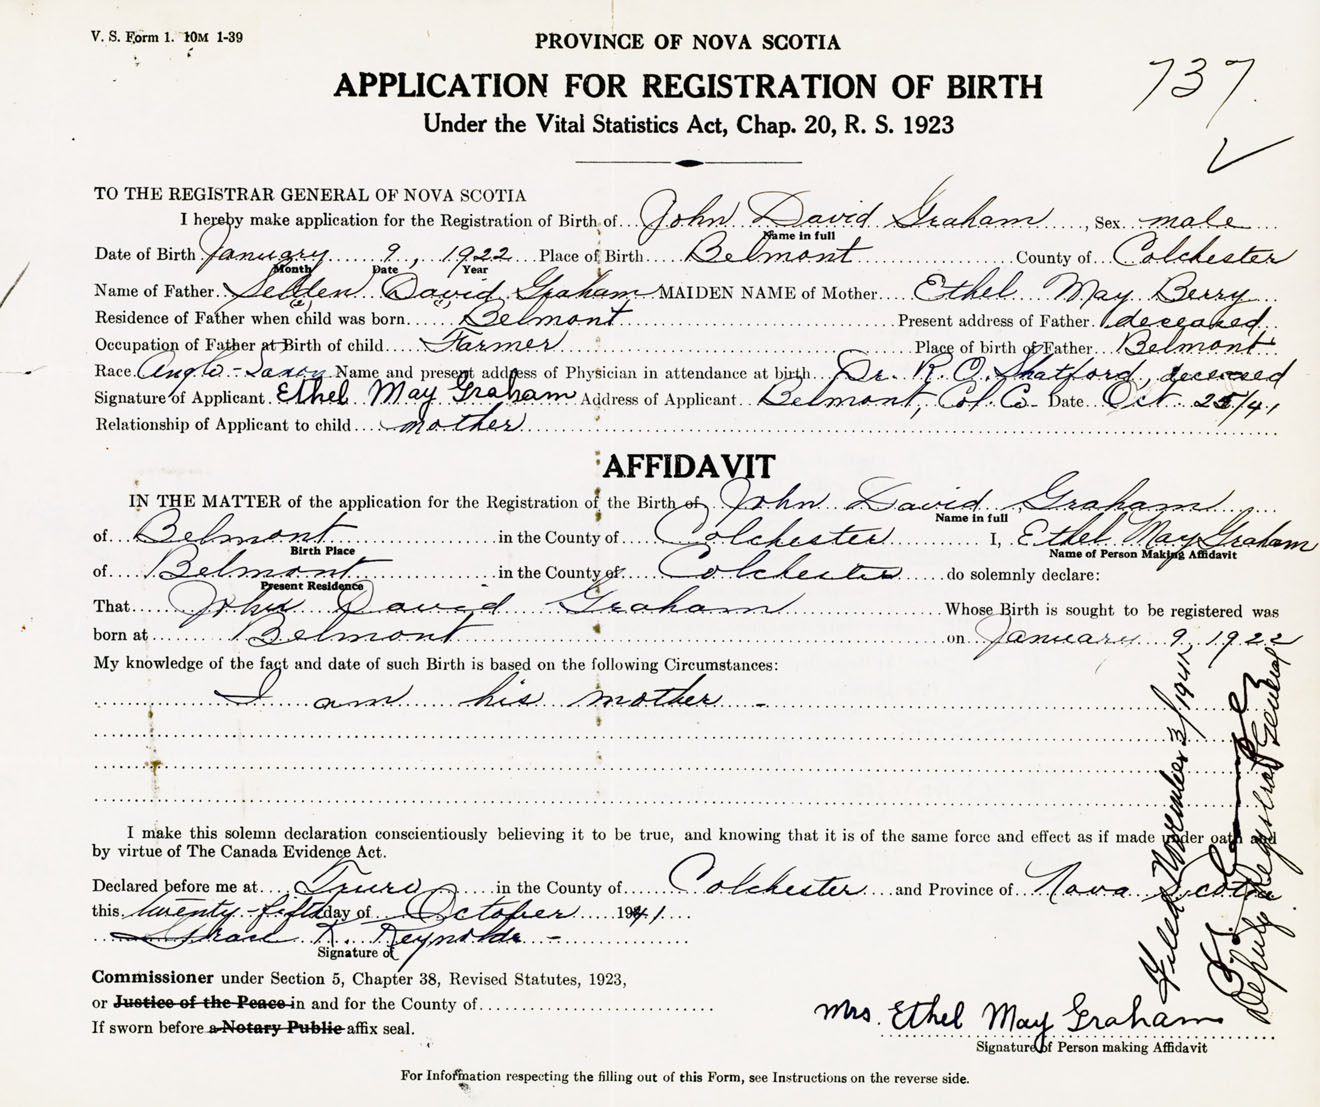 V. S. Form 1. 10M 1-39
PROVINCE OF NOVA SCOTIA
737
APPLICATION FOR REGISTRATION OF BIRTH
Under the Vital Statistics Act, Chap. 20, R. S. 1923
TO THE REGISTRAR GENERAL OF NOVA SCOTIA
I hereby make application for the Registration of Birth of John David Graham, Sex male
Name in full
Date of Birth January 9, 1922 Place of Birth Belmont County of Colchester
Month Date Year
Name of Father Selden David Graham MAIDEN NAME of Mother Ethel May Berry
Residence of Father when child was born Belmont Present address of Father deceased
Occupation of Father at Birth of child Farmer Place of birth of Father Belmont
Race Anglo-Saxon Name and present address of Physician in attendance at birth Dr. R. O. Shatford, deceased
Signature of Applicant Ethel May Graham Address of Applicant Belmont, Col. Co. Date Oct 25/41
Relationship of Applicant to child mother
AFFIDAVIT
IN THE MATTER of the application for the Registration of the Birth of John David Graham
Name in full
of Belmont in the County of Colchester I, Ethel May Graham
Birth Place Name of Person Making Affidavit
of Belmont in the County of Colchester do solemnly declare:
Present Residence
That John David Graham Whose Birth is sought to be registered was
born at Belmont on January 9, 1922
My knowledge of the fact and date of such Birth is based on the following Circumstances:
I am his mother
I make this solemn declaration conscientiously believing it to be true, and knowing that it is of the same force and effect as if made under oath and
by virtue of The Canada Evidence Act.
Declared before me at Truro in the County of Colchester and Province of Nova Scotia
this twenty-fifth day of October 1941
Grace K. Reynolds
Signature of
Commissioner under Section 5, Chapter 38, Revised Statutes, 1923,
or Justice of the Peace in and for the County of
If sworn before a Notary Public affix seal.
Mrs. Ethel May Graham
Signature of Person making Affidavit
Filed November 3/1941
Deputy Registrar General
For Information respecting the filling out of this Form, see Instructions on the reverse side.